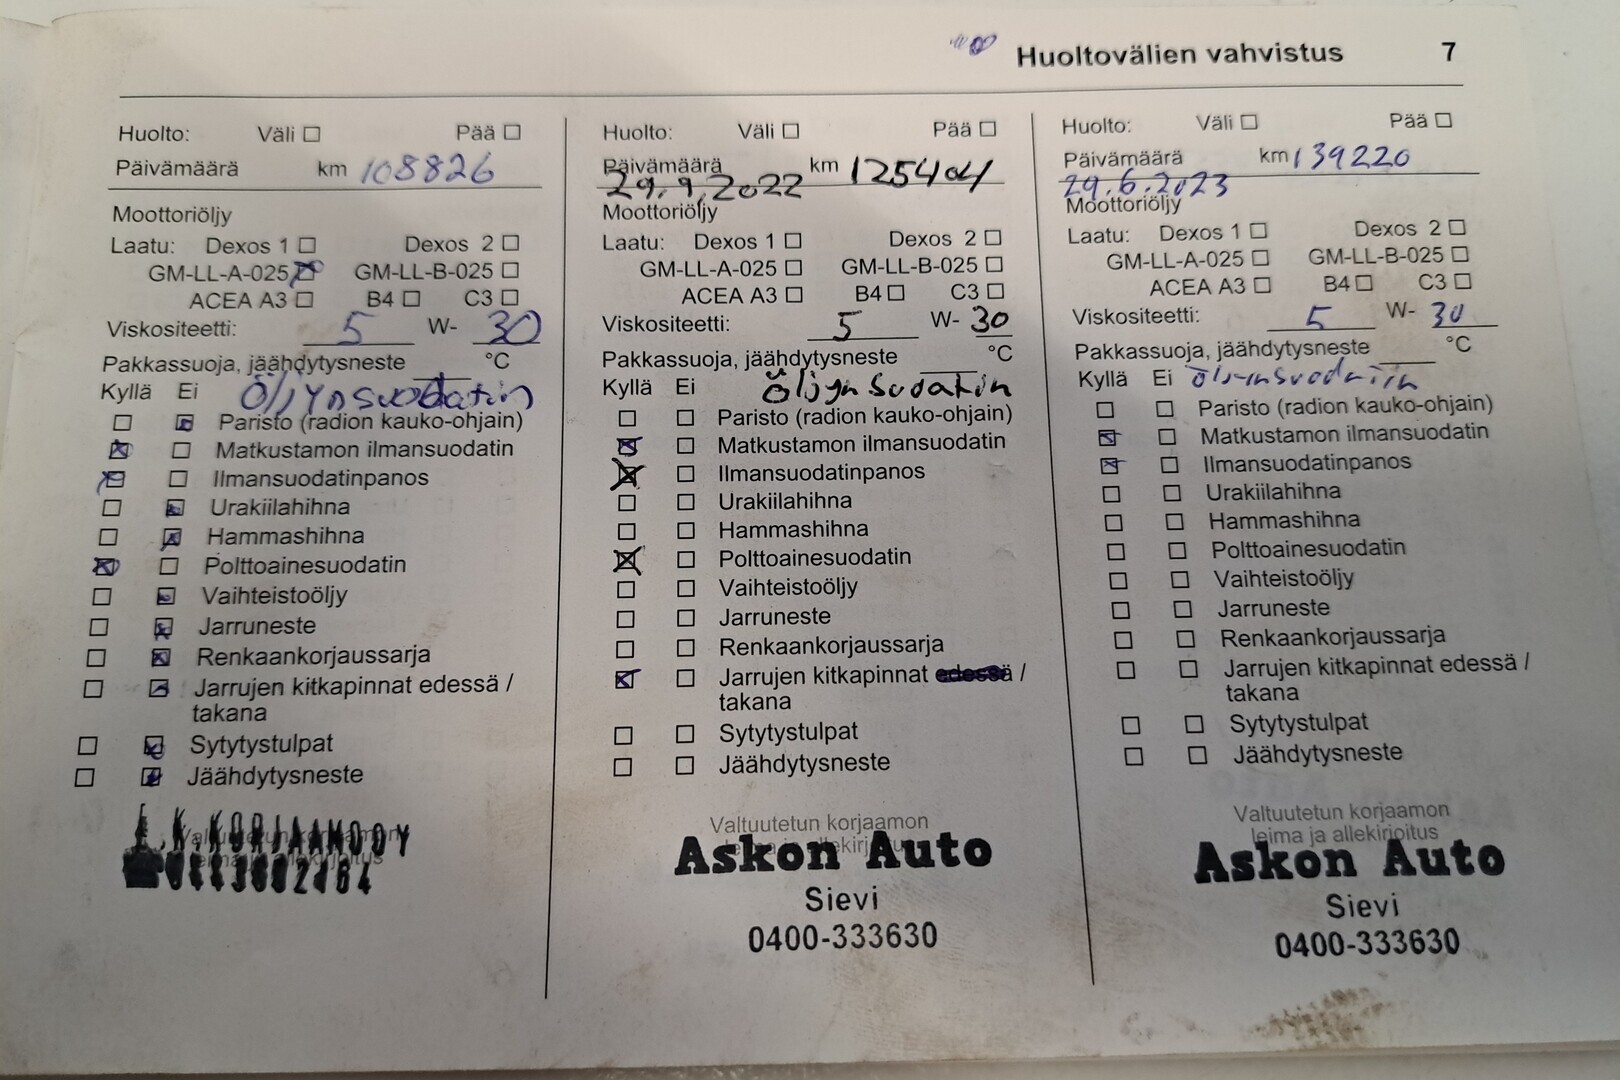 Huoltovälien vahvistus 7
Huolto: Väli Pää
Päivämäärä km 108826
Moottoriöljy
Laatu: Dexos 1 Dexos 2
GM-LL-A-025 GM-LL-B-025
ACEA A3 B4 C3
Viskositeetti: 5 W- 30
Pakkassuoja, jäähdytysneste °C
Kyllä Ei Öljynsuodatin
Paristo (radion kauko-ohjain)
Matkustamon ilmansuodatin
Ilmansuodatinpanos
Urakiilahihna
Hammashihna
Polttoainesuodatin
Vaihteistoöljy
Jarruneste
Renkaankorjaussarja
Jarrujen kitkapinnat edessä /
takana
Sytytystulpat
Jäähdytysneste
Valtuutetun korjaamon
leima ja allekirjoitus
K. KORJAAMO OY
Huolto: Väli Pää
Päivämäärä km 125404
29.9.2022
Moottoriöljy
Laatu: Dexos 1 Dexos 2
GM-LL-A-025 GM-LL-B-025
ACEA A3 B4 C3
Viskositeetti: 5 W- 30
Pakkassuoja, jäähdytysneste °C
Kyllä Ei Öljynsudatin
Paristo (radion kauko-ohjain)
Matkustamon ilmansuodatin
Ilmansuodatinpanos
Urakiilahihna
Hammashihna
Polttoainesuodatin
Vaihteistoöljy
Jarruneste
Renkaankorjaussarja
Jarrujen kitkapinnat edessä /
takana
Sytytystulpat
Jäähdytysneste
Valtuutetun korjaamon
leima ja allekirjoitus
Askon Auto
Sievi
0400-333630
Huolto: Väli Pää
Päivämäärä km 139220
29.6.2023
Moottoriöljy
Laatu: Dexos 1 Dexos 2
GM-LL-A-025 GM-LL-B-025
ACEA A3 B4 C3
Viskositeetti: 5 W- 30
Pakkassuoja, jäähdytysneste °C
Kyllä Ei Öljynsuodatin
Paristo (radion kauko-ohjain)
Matkustamon ilmansuodatin
Ilmansuodatinpanos
Urakiilahihna
Hammashihna
Polttoainesuodatin
Vaihteistoöljy
Jarruneste
Renkaankorjaussarja
Jarrujen kitkapinnat edessä /
takana
Sytytystulpat
Jäähdytysneste
Valtuutetun korjaamon
leima ja allekirjoitus
Askon Auto
Sievi
0400-333630